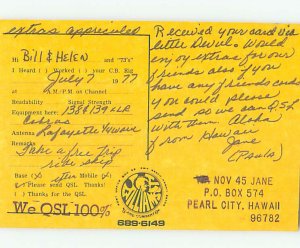 extras appreciated
Hi Bill & Helen and "73's"
I Heard ( ) Worked ( ) your C.B. Sig
July 7 1977
at A.M./P.M. on Channel
Readability Signal Strength
Equipment here: 138 & 139 SLR
Cobras
Antenna Lafayette
Remarks
Take a free trip
ride ship
Base ( ) Mobile ( )
( ) Please send QSL.
( ) Thanks for QSL! Thanks!
We QSL 100%
689-6149
Received your card via
letter Devil. Would
enjoy extras for our
friends also if you
have any friends and
you could please
send so we can QSL
with them Aloha
from Hawaii
Jane
(Pauls)
NOV 45 JANE
P.O. BOX 574
PEARL CITY, HAWAII
96782